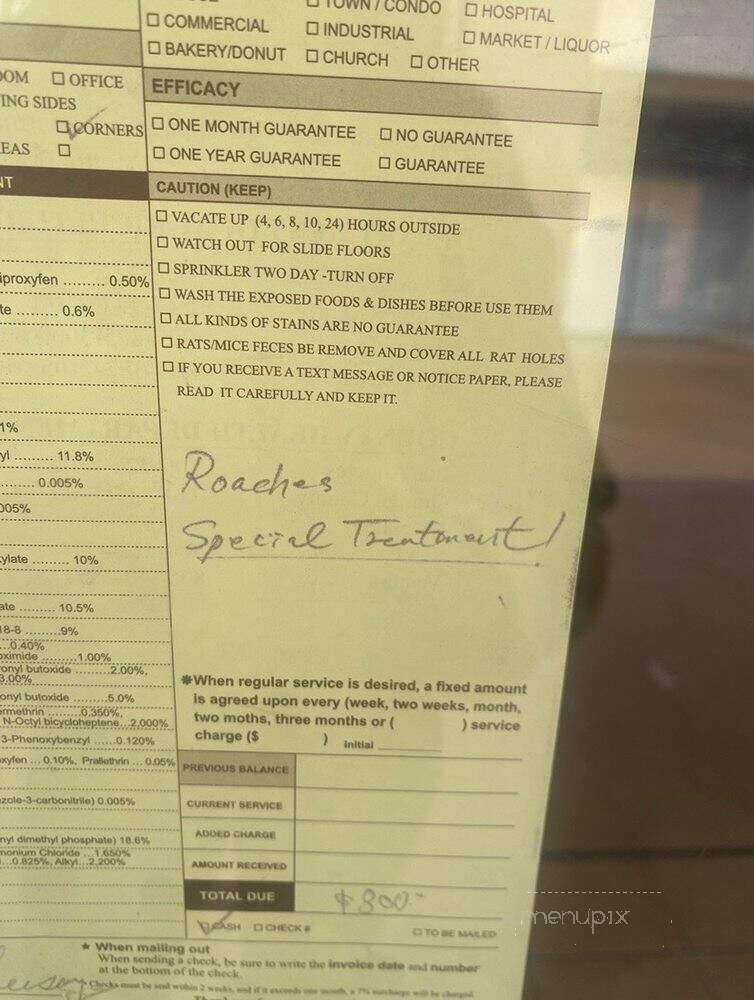 ☐ TOWN / CONDO ☐ HOSPITAL
☐ COMMERCIAL ☐ INDUSTRIAL ☐ MARKET / LIQUOR
☐ BAKERY/DONUT ☐ CHURCH ☐ OTHER
OOM ☐ OFFICE
ING SIDES
☑ CORNERS
EAS ☐
NT
EFFICACY
☐ ONE MONTH GUARANTEE ☐ NO GUARANTEE
☐ ONE YEAR GUARANTEE ☐ GUARANTEE
CAUTION (KEEP)
☐ VACATE UP (4, 6, 8, 10, 24) HOURS OUTSIDE
☐ WATCH OUT FOR SLIDE FLOORS
☐ SPRINKLER TWO DAY -TURN OFF
☐ WASH THE EXPOSED FOODS & DISHES BEFORE USE THEM
☐ ALL KINDS OF STAINS ARE NO GUARANTEE
☐ RATS/MICE FECES BE REMOVE AND COVER ALL RAT HOLES
☐ IF YOU RECEIVE A TEXT MESSAGE OR NOTICE PAPER, PLEASE
READ IT CAREFULLY AND KEEP IT.
iproxyfen ......... 0.50%
te ......... 0.6%
1%
yl ......... 11.8%
......... 0.005%
005%
xylate ......... 10%
ate ......... 10.5%
18-8 .........9%
...0.40%
oximide .........1.00%
onyl butoxide .........2.00%,
3.00%
onyl butoxide .......5.0%
ermethrin .........0.350%,
N-Octyl bicycloheptene...2,000%
3-Phenoxybenzyl ......0.120%
oxyfen ... 0.10%, Prallethrin ... 0.05%
zole-3-carbonitrile) 0.005%
nyl dimethyl phosphate) 18.6%
monium Chloride ...1.650%
...0.825%, Alkyl...2.200%
Roaches
Special Treatment!
✱When regular service is desired, a fixed amount
is agreed upon every (week, two weeks, month,
two moths, three months or ( ) service
charge ($ ) initial
PREVIOUS BALANCE
CURRENT SERVICE
ADDED CHARGE
AMOUNT RECEIVED
TOTAL DUE $300-
☑ CASH ☐ CHECK # ☐ TO BE MAILED
★ When mailing out
When sending a check, be sure to write the invoice date and number
at the bottom of the check.
* Checks must be sent within 2 weeks, and if it exceeds one month, a 7% surcharge will be charged
menupix